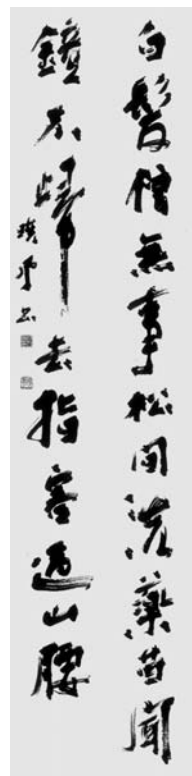 白髮僧無事松間洗藥苗聞
鐘歸去指寒過山腰